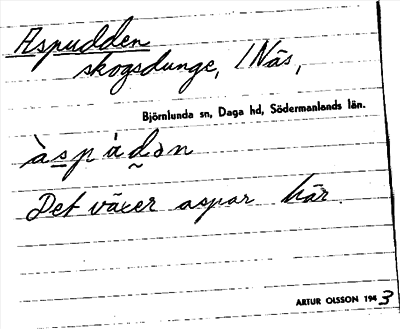 Aspudden
skogsdunge, 1 Näs,
Björnlunda sn, Daga hd, Södermanlands län.
àspàdən
Det växer aspar här.
ARTUR OLSSON 1943